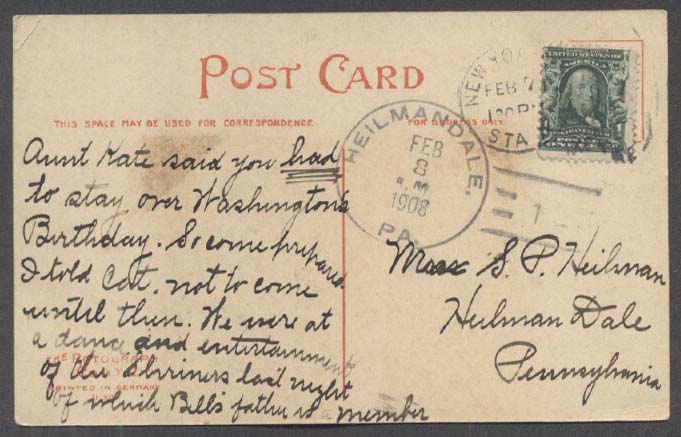 POST CARD
THIS SPACE MAY BE USED FOR CORRESPONDENCE.
FOR ADDRESS ONLY.
NEW YO
FEB 7
STA
UNITED STATES OF
AMERICA
HEILMANDALE,
FEB
8
1908
PA.
1
Aunt Kate said you had
to stay over Washington's
Birthday. So come prepared
I told Cat. not to come
until then. We were at
a dance and entertainment
of the Shriners last night
of which Bell's father is a member
THE ROTOGRAPH
PRINTED IN GERMANY
S. P. Heilman
Heilman Dale
Pennsylvania